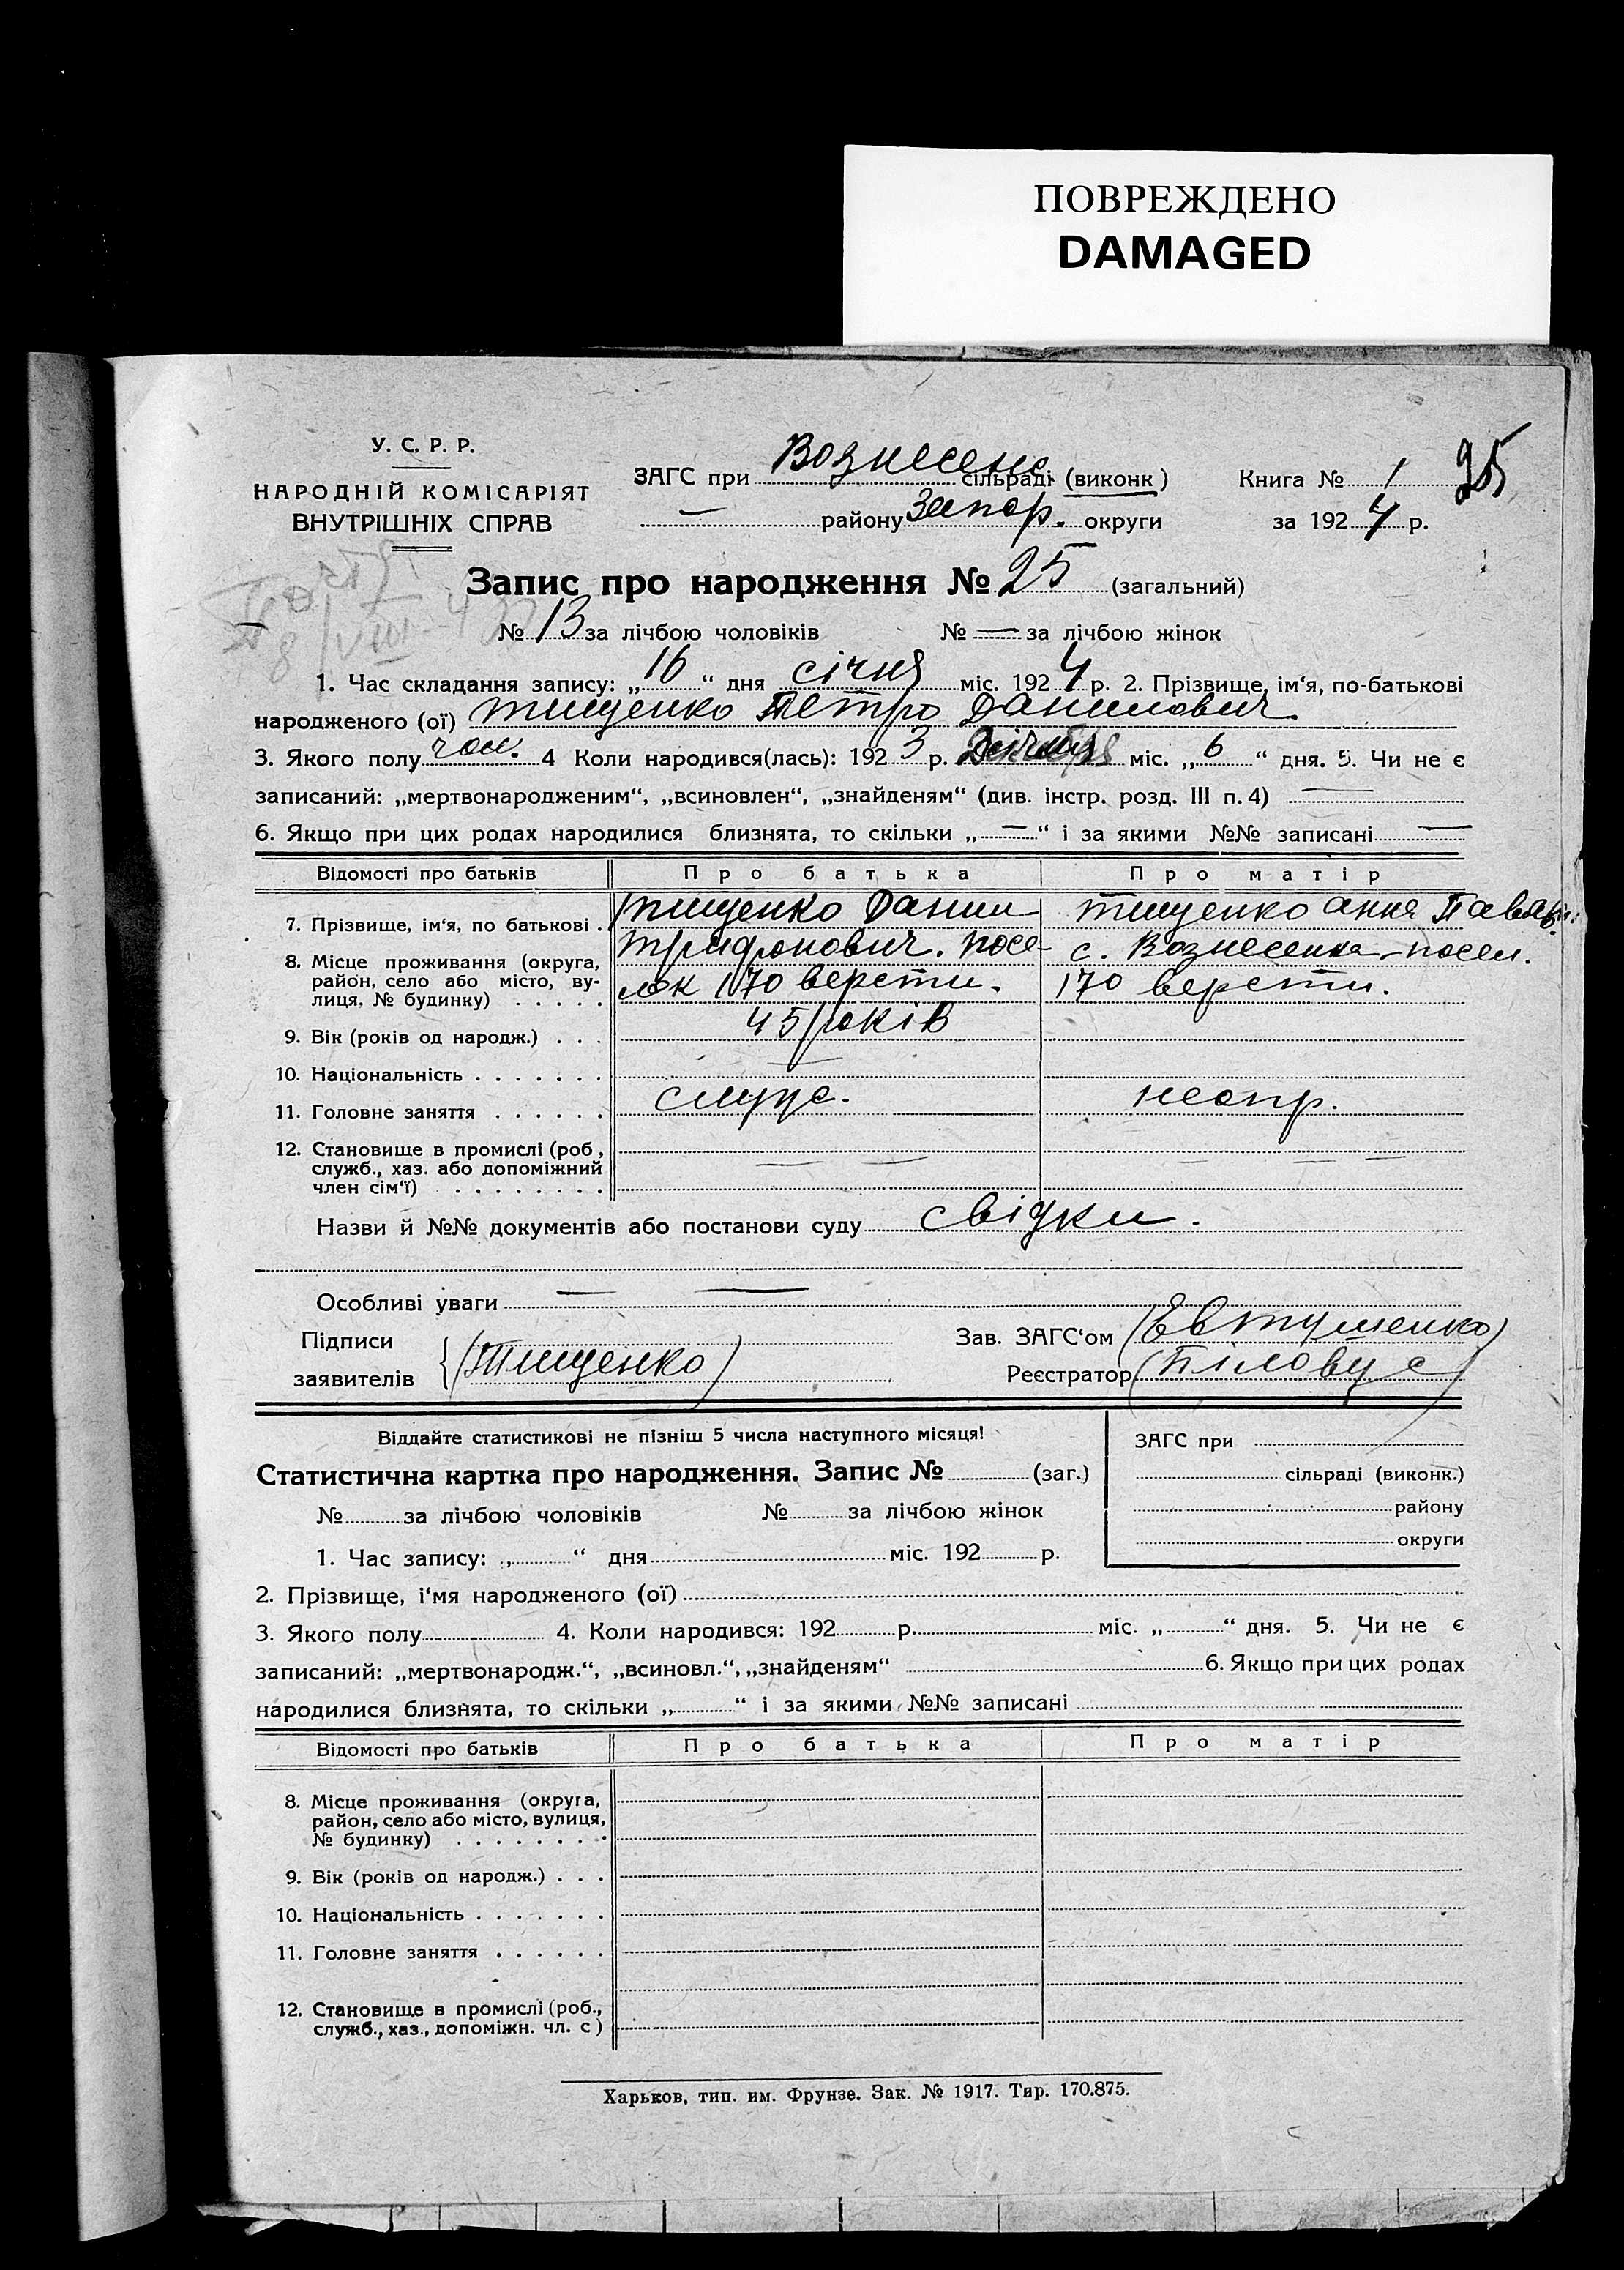 ПОВРЕЖДЕНО
DAMAGED
У. С. Р. Р.
НАРОДНІЙ КОМІСАРІЯТ
ВНУТРІШНІХ СПРАВ
ЗАГС при Вознесенс сільраді (виконк)
— району Запор. округи
Книга № 1
за 1924 р.
25
Запис про народження № 25 (загальний)
№ 13 за лічбою чоловіків № — за лічбою жінок
1. Час складання запису: „16“ дня січня міс. 1924 р. 2. Прізвище, ім‘я, по-батькові
народженого (ої) Тищенко Петро Данилович
3. Якого полу чол. 4 Коли народився(лась): 1923 р. міс. „6“ дня. 5. Чи не є
записаний: „мертвонародженим“, „всиновлен“, „знайденям“ (див. інстр. розд. III п. 4) —
6. Якщо при цих родах народилися близнята, то скільки „—“ і за якими №№ записані —
Відомості про батьків Про батька Про матір
7. Прізвище, ім‘я, по батькові . Тищенко Данил Тищенко Анна
8. Місце проживання (округа, Трифонович. посе- с. Вознесенка - посел.
район, село або місто, ву- лок 170 версти. 170 версти.
лиця, № будинку) . . . . .
9. Вік (років од народж.) . . . 45 років
10. Національність . . . . . . .
11. Головне заняття . . . . . . неопр.
12. Становище в промислі (роб,
служб., хаз. або допоміжний — — — — —
член сім‘ї) . . . . . . . .
Назви й №№ документів або постанови суду свідки.
Особливі уваги — —
Підписи
заявителів (Тищенко)
Зав. ЗАГС‘ом (Евтушенко)
Реєстратор (Біловус)
Віддайте статистикові не пізніш 5 числа наступного місяця!
Статистична картка про народження. Запис № (заг.)
№ за лічбою чоловіків № за лічбою жінок
1. Час запису: „ “ дня міс. 192 р.
ЗАГС при
сільраді (виконк.)
району
округи
2. Прізвище, і‘мя народженого (ої)
3. Якого полу 4. Коли народився: 192 р. міс. „ “ дня. 5. Чи не є
записаний: „мертвонародж.“, „всиновл.“, „знайденям“ 6. Якщо при цих родах
народилися близнята, то скільки „ “ і за якими №№ записані
Відомості про батьків Про батька Про матір
8. Місце проживання (округа,
район, село або місто, вулиця,
№ будинку) . . . . . . . .
9. Вік (років од народж.) . . .
10. Національність . . . . . . .
11. Головне заняття . . . . . .
12. Становище в промислі (роб.,
служб., хаз., допоміжн. чл. с )
Харьков, тип. им. Фрунзе. Зак. № 1917. Тир. 170.875.